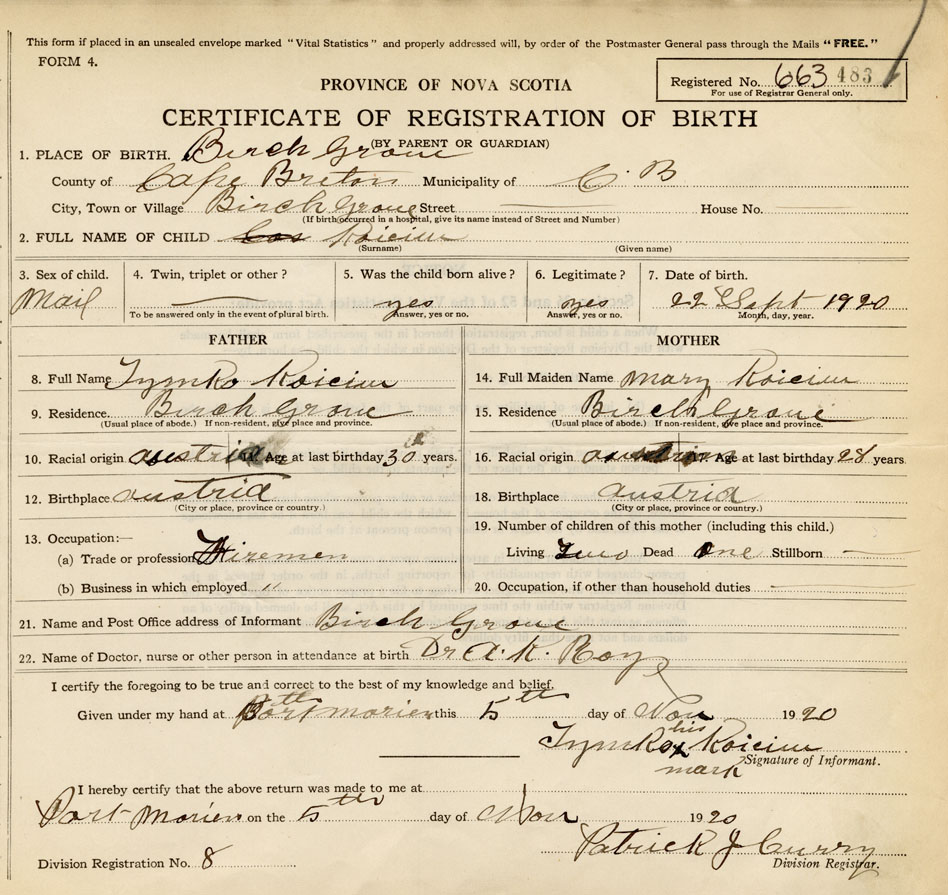 This form if placed in an unsealed envelope marked "Vital Statistics" and properly addressed will, by order of the Postmaster General pass through the Mails "FREE."
FORM 4.
Registered No. 663 483
For use of Registrar General only.
PROVINCE OF NOVA SCOTIA
CERTIFICATE OF REGISTRATION OF BIRTH
(BY PARENT OR GUARDIAN)
1. PLACE OF BIRTH. Birch Grove
County of Cape Breton Municipality of C. B
City, Town or Village Birch Grove Street House No.
(If birth occurred in a hospital, give its name instead of Street and Number)
2. FULL NAME OF CHILD Koiciw
(Surname) (Given name)
3. Sex of child. 4. Twin, triplet or other? 5. Was the child born alive? 6. Legitimate? 7. Date of birth.
Mail yes yes 22 Sept 1920
To be answered only in the event of plural birth. Answer, yes or no. Answer, yes or no. Month, day, year.
FATHER MOTHER
8. Full Name Tymko Koiciw 14. Full Maiden Name Mary Koiciw
9. Residence. Birch Grove 15. Residence Birch Grove
(Usual place of abode.) If non-resident, give place and province. (Usual place of abode.) If non-resident, give place and province.
10. Racial origin Age at last birthday 30 years. 16. Racial origin Age at last birthday 28 years.
12. Birthplace austria 18. Birthplace austria
(City or place, province or country.) (City or place, province or country.)
13. Occupation:— 19. Number of children of this mother (including this child.)
(a) Trade or profession Firemen Living Two Dead One Stillborn
(b) Business in which employed " 20. Occupation, if other than household duties -
21. Name and Post Office address of Informant Birch Grove
22. Name of Doctor, nurse or other person in attendance at birth Dr A. K. Roy
I certify the foregoing to be true and correct to the best of my knowledge and belief.
Given under my hand at Port Morien this 5th day of Nov 1920
Tymko his x mark Koiciw
Signature of Informant.
I hereby certify that the above return was made to me at
Port Morien on the 5th day of Nov 1920
Patrick J Curry
Division Registration No. 8 Division Registrar.